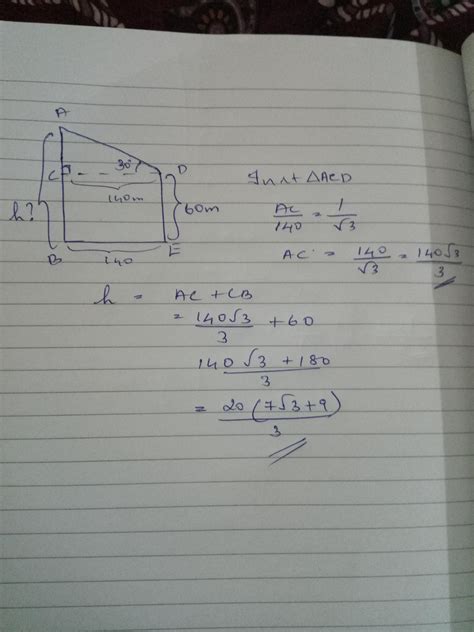 A
30°
C
D
140m
h?
60m
B
140
E
In rt △ACD
AC/140 = 1/√3
AC = 140/√3 = 140√3/3
h = AC + CB
= 140√3/3 + 60
140√3 + 180/3
= 20(7√3+9)/3